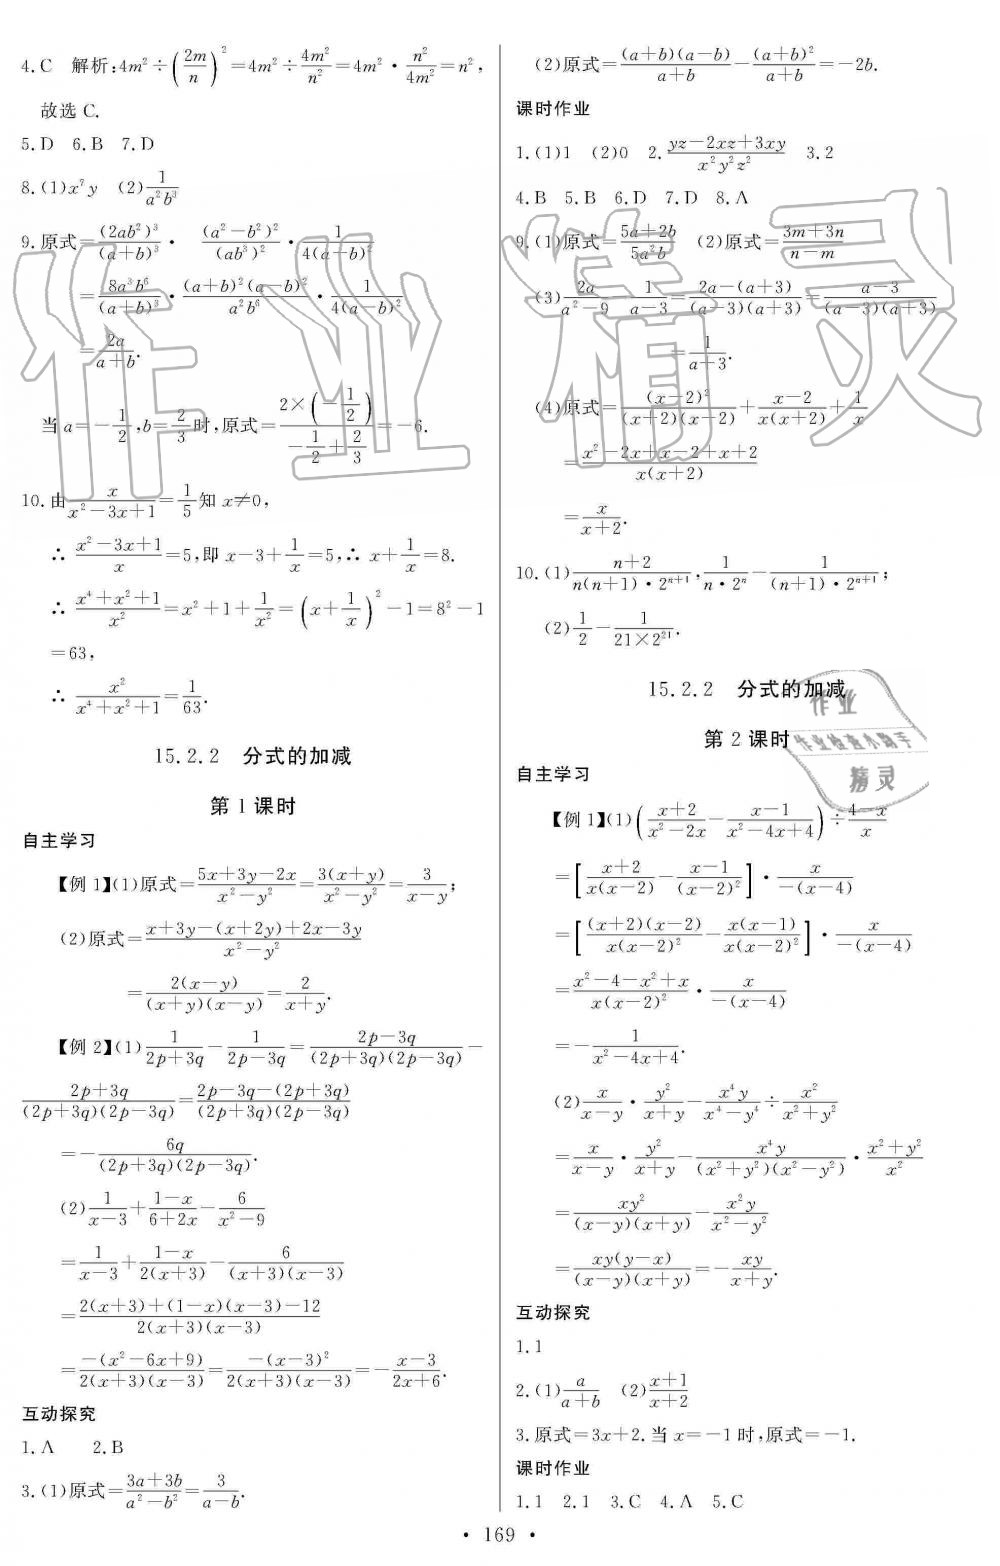 4.C 解析:4m²÷(2m/n)²=4m²÷4m²/n²=4m²·n²/4m²=n²,
故选 C.
5.D 6.B 7.D
8.(1)x⁷y (2)1/(a²b³)
9.原式=(2ab²)³/(a+b)³·(a²−b²)²/(ab³)²·1/[4(a−b)²]
=8a³b⁶/(a+b)³·(a+b)²(a−b)²/(a²b⁶)·1/[4(a−b)²]
=2a/(a+b).
当a=−1/2,b=2/3时,原式=[2×(−1/2)]/(−1/2+2/3)=−6.
10.由x/(x²−3x+1)=1/5知 x≠0,
∴ (x²−3x+1)/x=5,即 x−3+1/x=5,∴ x+1/x=8.
∴ (x⁴+x²+1)/x²=x²+1+1/x²=(x+1/x)²−1=8²−1
=63,
∴ x²/(x⁴+x²+1)=1/63.
15.2.2 分式的加减
第1课时
自主学习
【例1】(1)原式=(5x+3y−2x)/(x²−y²)=3(x+y)/(x²−y²)=3/(x−y);
(2)原式=[x+3y−(x+2y)+2x−3y]/(x²−y²)
=2(x−y)/[(x+y)(x−y)]=2/(x+y).
【例2】(1)1/(2p+3q)−1/(2p−3q)=(2p−3q)/[(2p+3q)(2p−3q)]−
(2p+3q)/[(2p+3q)(2p−3q)]=[2p−3q−(2p+3q)]/[(2p+3q)(2p−3q)]
=−6q/[(2p+3q)(2p−3q)].
(2)1/(x−3)+(1−x)/(6+2x)−6/(x²−9)
=1/(x−3)+(1−x)/[2(x+3)]−6/[(x+3)(x−3)]
=[2(x+3)+(1−x)(x−3)−12]/[2(x+3)(x−3)]
=−(x²−6x+9)/[2(x+3)(x−3)]=−(x−3)²/[2(x+3)(x−3)]=−(x−3)/(2x+6).
互动探究
1.A 2.B
3.(1)原式=(3a+3b)/(a²−b²)=3/(a−b).
(2)原式=(a+b)(a−b)/(a+b)−(a+b)²/(a+b)=−2b.
课时作业
1.(1)1 (2)0 2.(yz−2xz+3xy)/(x²y²z²) 3.2
4.B 5.B 6.D 7.D 8.A
9.(1)原式=(5a+2b)/(5a²b) (2)原式=(3m+3n)/(n−m)
(3)2a/(a²−9)−1/(a−3)=[2a−(a+3)]/[(a−3)(a+3)]=(a−3)/[(a−3)(a+3)]
=1/(a+3).
(4)原式=(x−2)²/[(x+2)(x−2)]+(x−2)/[x(x+2)]+1/x
=(x²−2x+x−2+x+2)/[x(x+2)]
=x/(x+2).
10.(1)(n+2)/[n(n+1)·2ⁿ⁺¹],1/(n·2ⁿ)−1/[(n+1)·2ⁿ⁺¹];
(2)1/2−1/(21×2²¹).
15.2.2 分式的加减
第2课时
自主学习
【例1】(1)[(x+2)/(x²−2x)−(x−1)/(x²−4x+4)]÷(4−x)/x
=[(x+2)/(x(x−2))−(x−1)/(x−2)²]·x/[−(x−4)]
=[(x+2)(x−2)/(x(x−2)²)−x(x−1)/(x(x−2)²)]·x/[−(x−4)]
=(x²−4−x²+x)/[x(x−2)²]·x/[−(x−4)]
=−1/(x²−4x+4).
(2)x/(x−y)·y²/(x+y)−x⁴y/(x⁴−y⁴)÷x²/(x²+y²)
=x/(x−y)·y²/(x+y)−x⁴y/[(x²+y²)(x²−y²)]·(x²+y²)/x²
=xy²/[(x−y)(x+y)]−x²y/(x²−y²)
=xy(y−x)/[(x−y)(x+y)]=−xy/(x+y).
互动探究
1.1
2.(1)a/(a+b) (2)(x+1)/(x+2)
3.原式=3x+2.当 x=−1时,原式=−1.
课时作业
1.1 2.1 3.C 4.A 5.C
·169·
作业精灵
作业
作业检查小助手
精灵